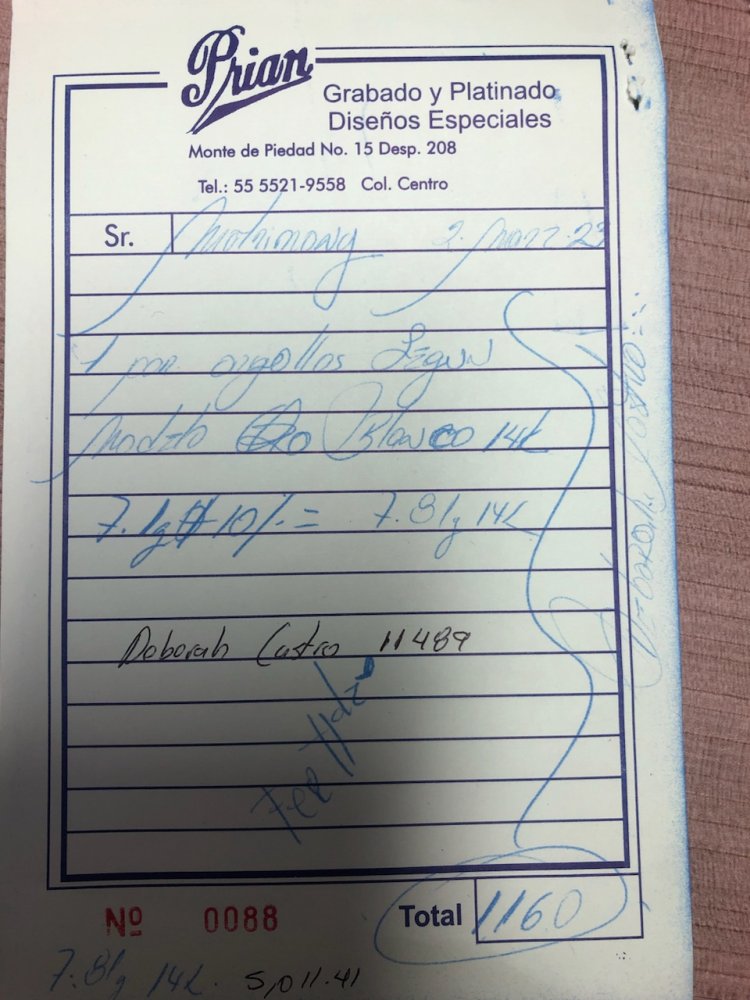 Prian
Grabado y Platinado
Diseños Especiales
Monte de Piedad No. 15 Desp. 208
Tel.: 55 5521-9558 Col. Centro
Sr. 2. 23
1 par argollas Segun
Modelo Oro Blanco 14k
7.1g + 10% = 7.81g 14k
Deborah Castro 11489
Nº 0088 Total 1160
7.81g 14k. 5,011.41